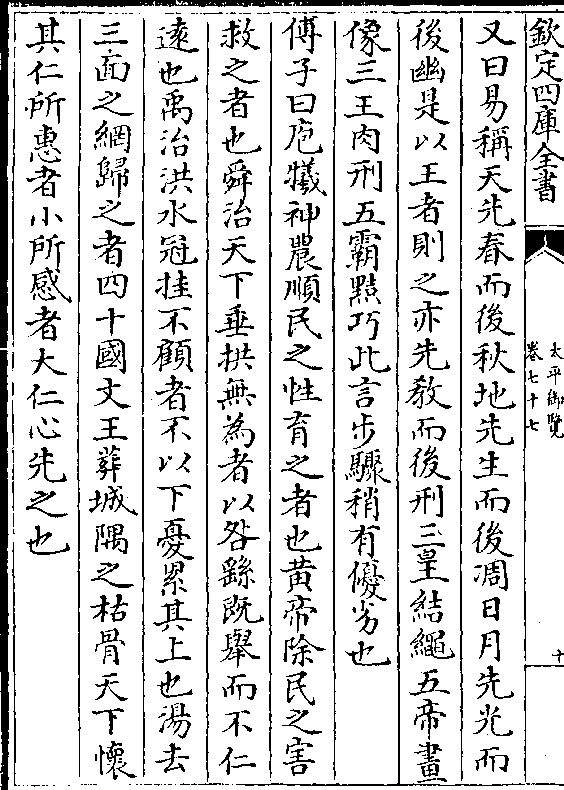 欽定四庫全書
太平御覽
卷七十七
十
又曰易稱天先春而後秋地先生而後凋日月先光而
後幽是以王者則之亦先教而後刑三皇結繩五帝畫
像三王肉刑五霸黠巧此言步驟稍有優劣也
傅子曰庖犧神農順民之性育之者也黄帝除民之害
救之者也舜治天下垂拱無為者以咎繇既舉而不仁
逺也禹治洪水冠挂不顧者不以下憂累其上也湯去
三面之網歸之者四十國文王葬城隅之枯骨天下懷
其仁所惠者小所感者大仁心先之也